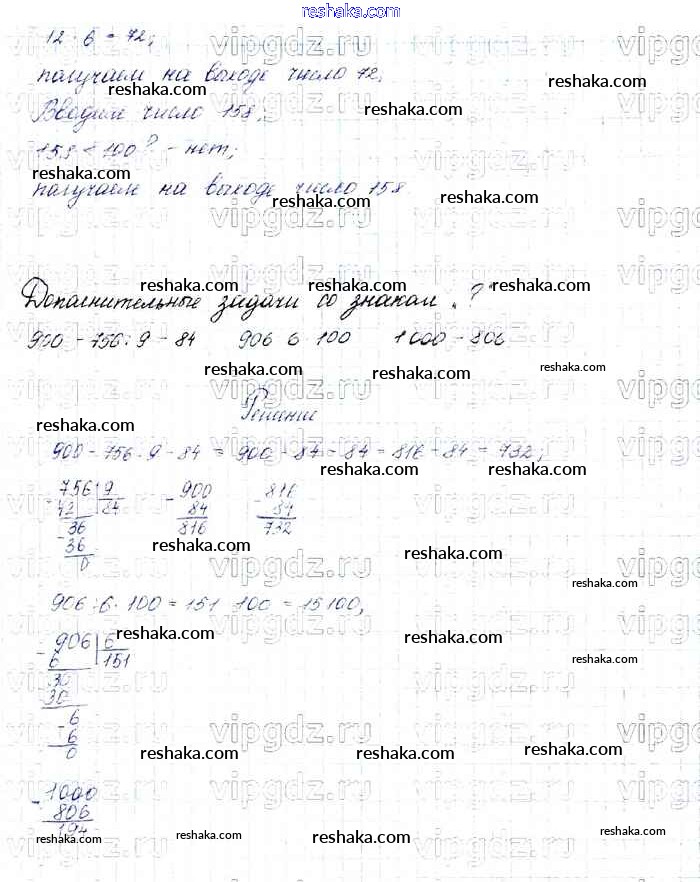 reshaka.com
12 · 6 = 72,
получаем на выходе число 72;
Вводим число 158;
158 < 100? - нет;
получаем на выходе число 158.
Дополнительные задачи со знаком „?"
900 - 756 : 9 - 84 906 6 100 1000 - 806
Решение
900 - 756 : 9 - 84 = 900 - 84 - 84 = 816 - 84 = 732;
756 9 900 816
84 84 84
36 816 732
36
0
906 : 6 · 100 = 151 100 = 15100,
906 6
6 151
30
30
6
6
0
1000
806
194
vipgdz.ru
reshaka.com